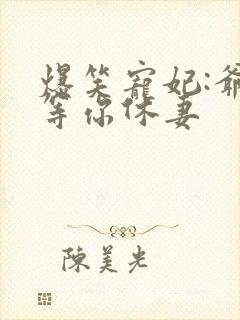 爆笑寵妃:爺
等你休妻
陳美光